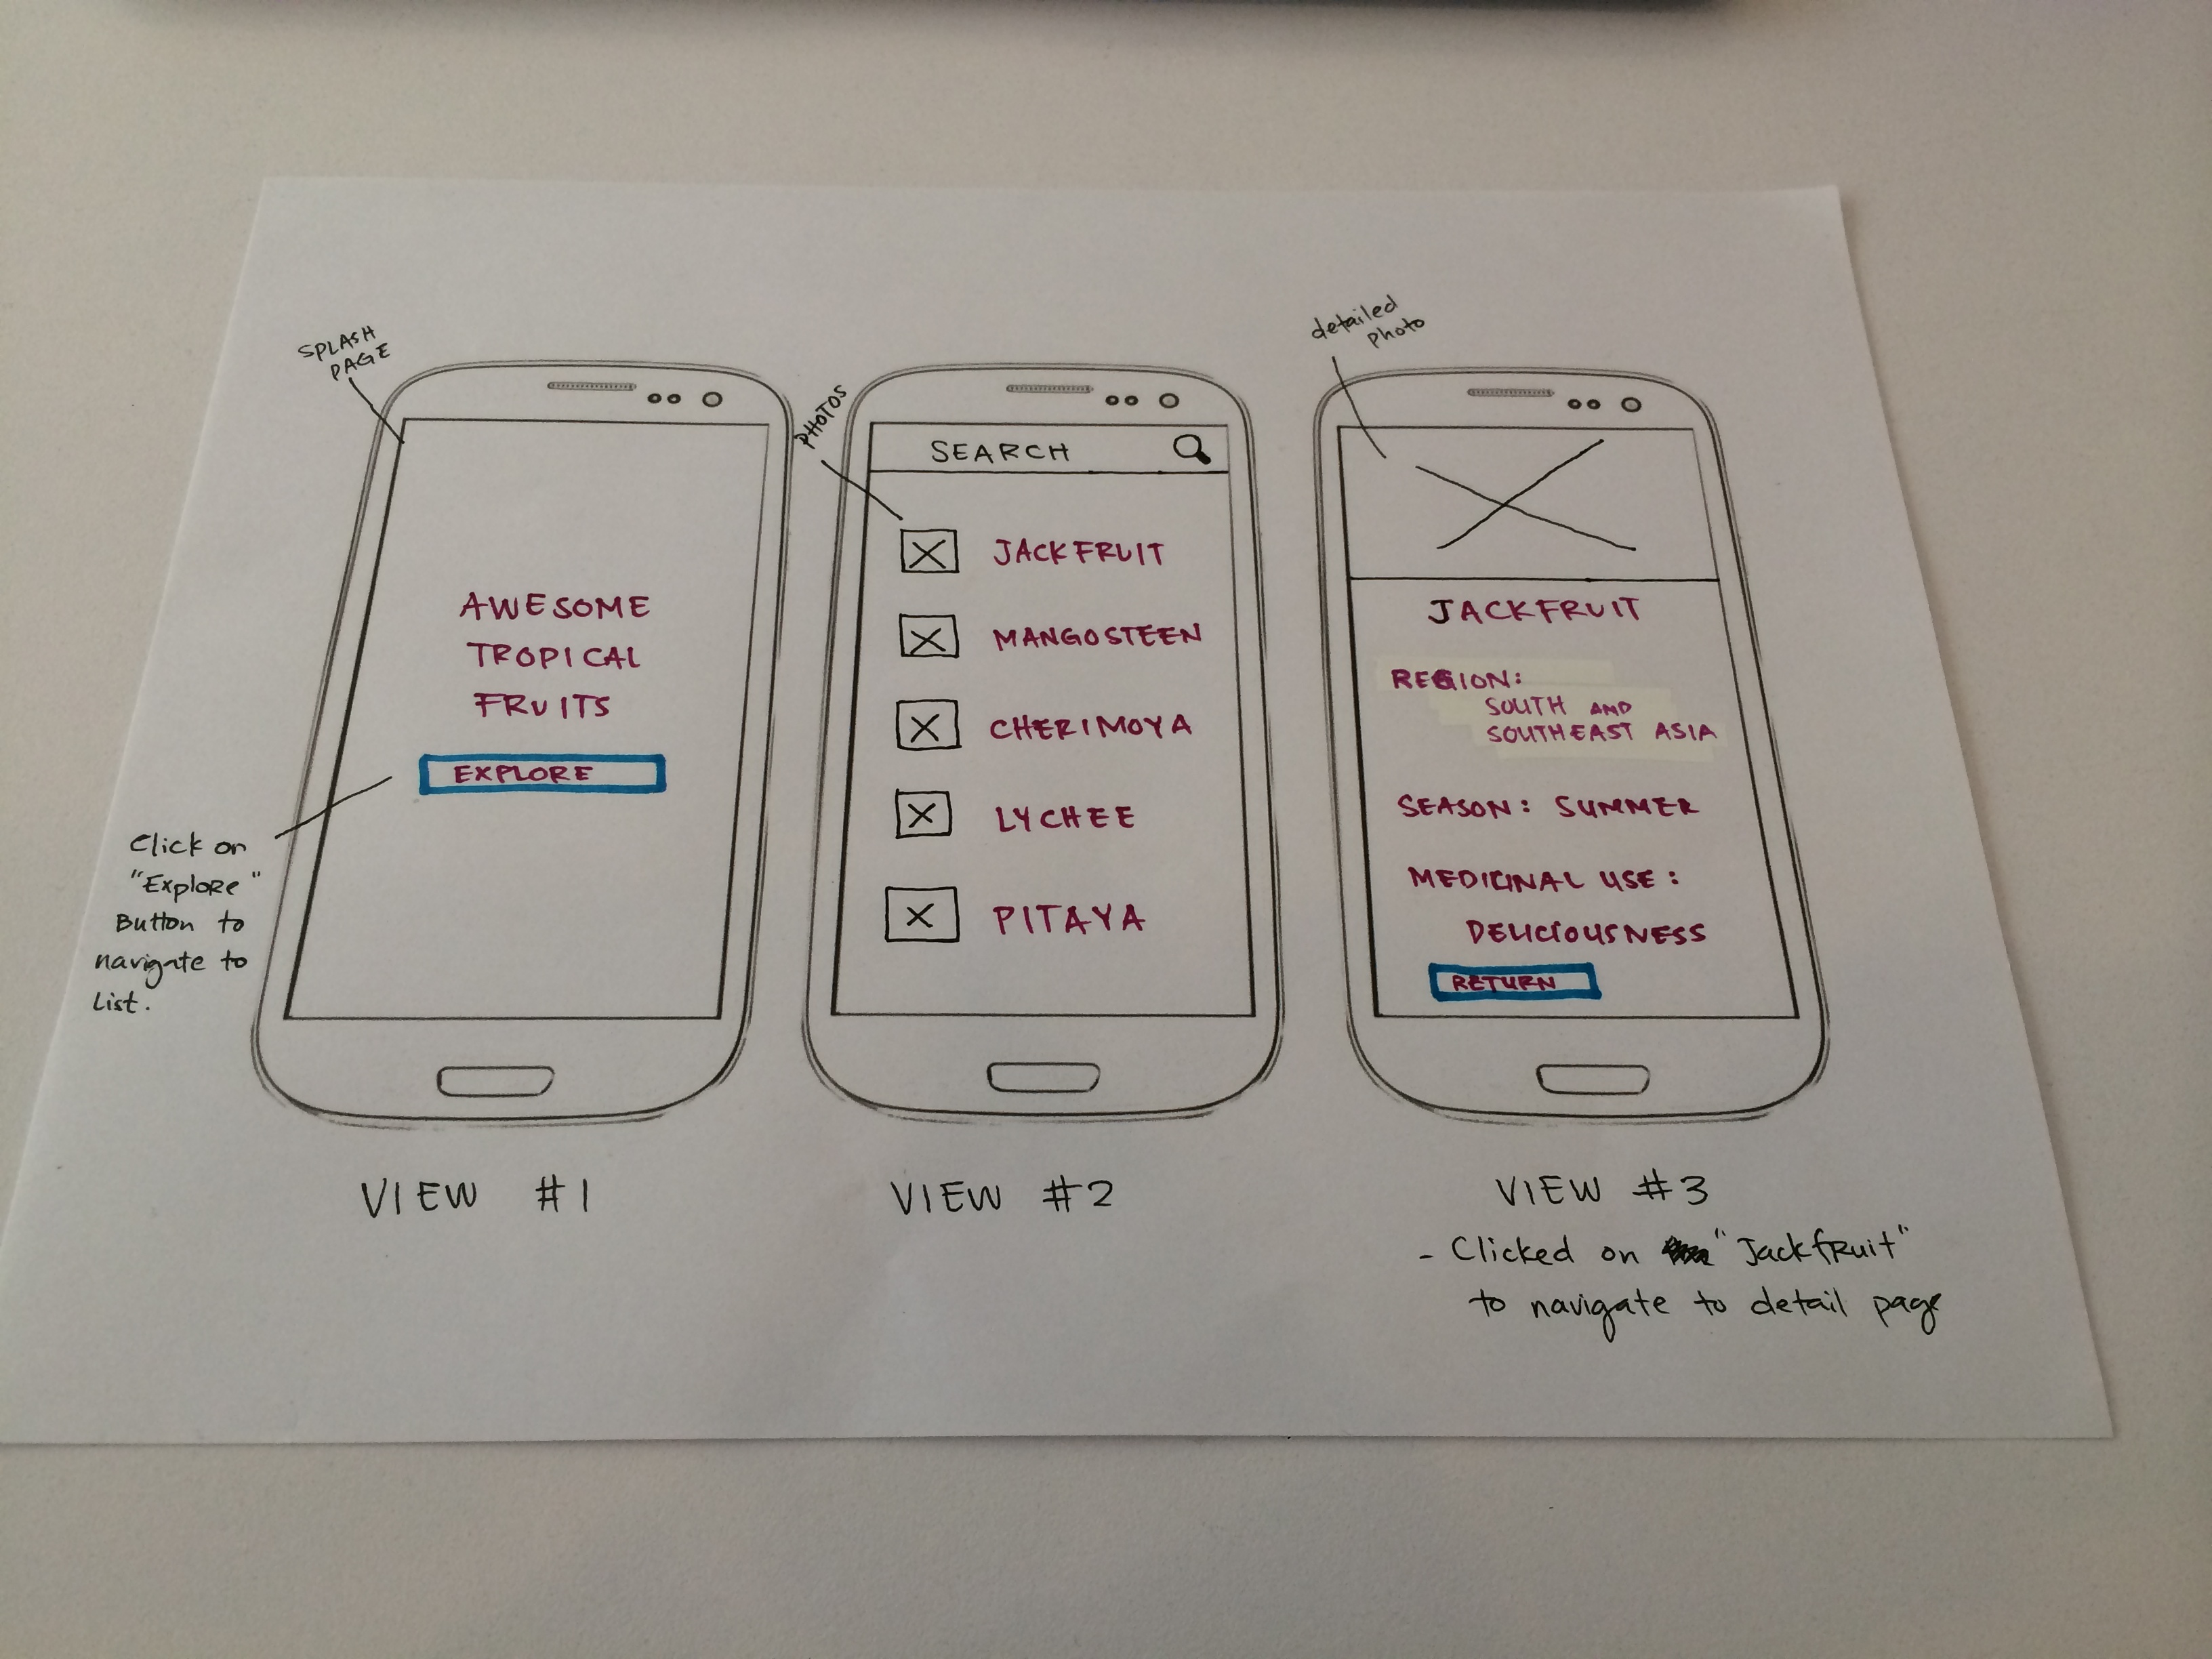 SPLASH
PAGE
AWESOME
TROPICAL
FRUITS
EXPLORE
Click on
"Explore"
Button to
navigate to
List.
VIEW #1
PHOTOS
SEARCH
JACKFRUIT
MANGOSTEEN
CHERIMOYA
LYCHEE
PITAYA
VIEW #2
detailed
photo
JACKFRUIT
REGION:
SOUTH AND
SOUTHEAST ASIA
SEASON: SUMMER
MEDICINAL USE:
DELICIOUSNESS
RETURN
VIEW #3
- Clicked on "Jackfruit"
to navigate to detail page